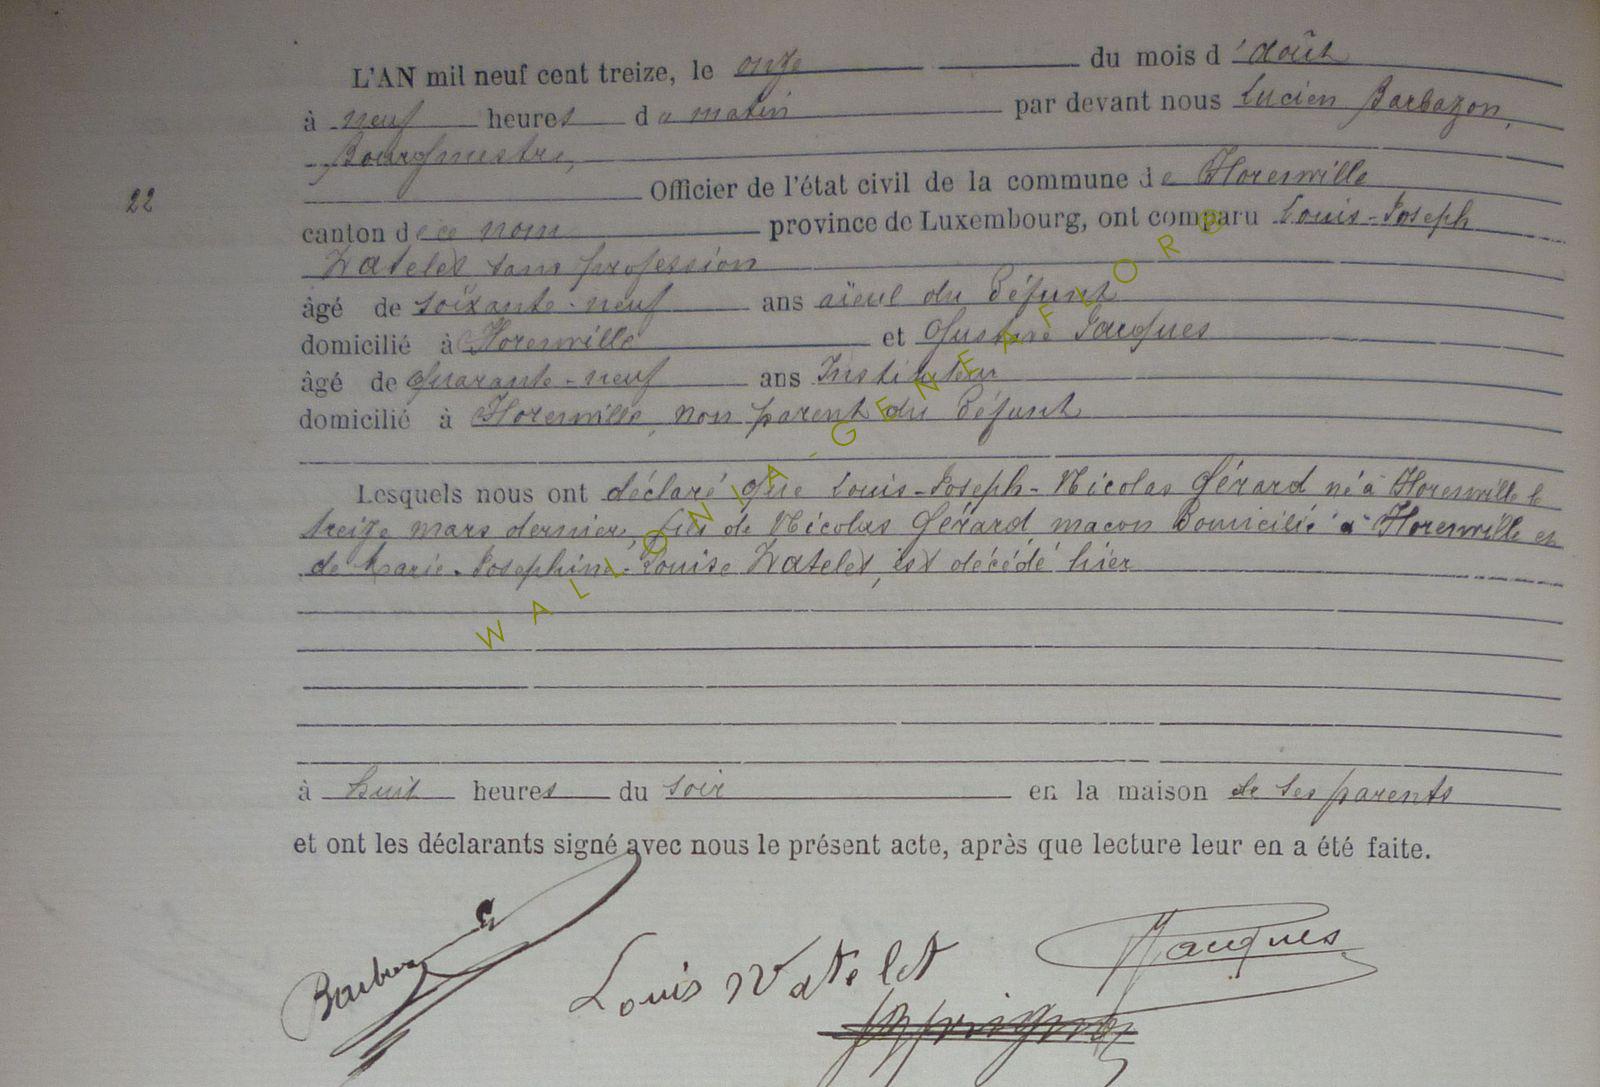 L'AN mil neuf cent treize, le onze du mois d'août
à neuf heures du matin par devant nous Lucien Barbazon,
Bourgmestre,
22
Officier de l'état civil de la commune de Florenville
canton de ce nom province de Luxembourg, ont comparu Louis-Joseph
Watelet sans profession
âgé de soixante-neuf ans aïeul du défunt
domicilié à Florenville et Gustave Jacques
âgé de quarante-neuf ans Instituteur
domicilié à Florenville, non parent du défunt
Lesquels nous ont déclaré que Louis-Joseph-Nicolas Gérard né à Florenville le
treize mars dernier, fils de Nicolas Gérard, maçon domicilié à Florenville et
de Marie-Joséphine-Louise Watelet, est décédé hier
à huit heures du soir en la maison de ses parents
et ont les déclarants signé avec nous le présent acte, après que lecture leur en a été faite.
Louis Watelet
Jacques
WALLONIA-GENEAFLORE